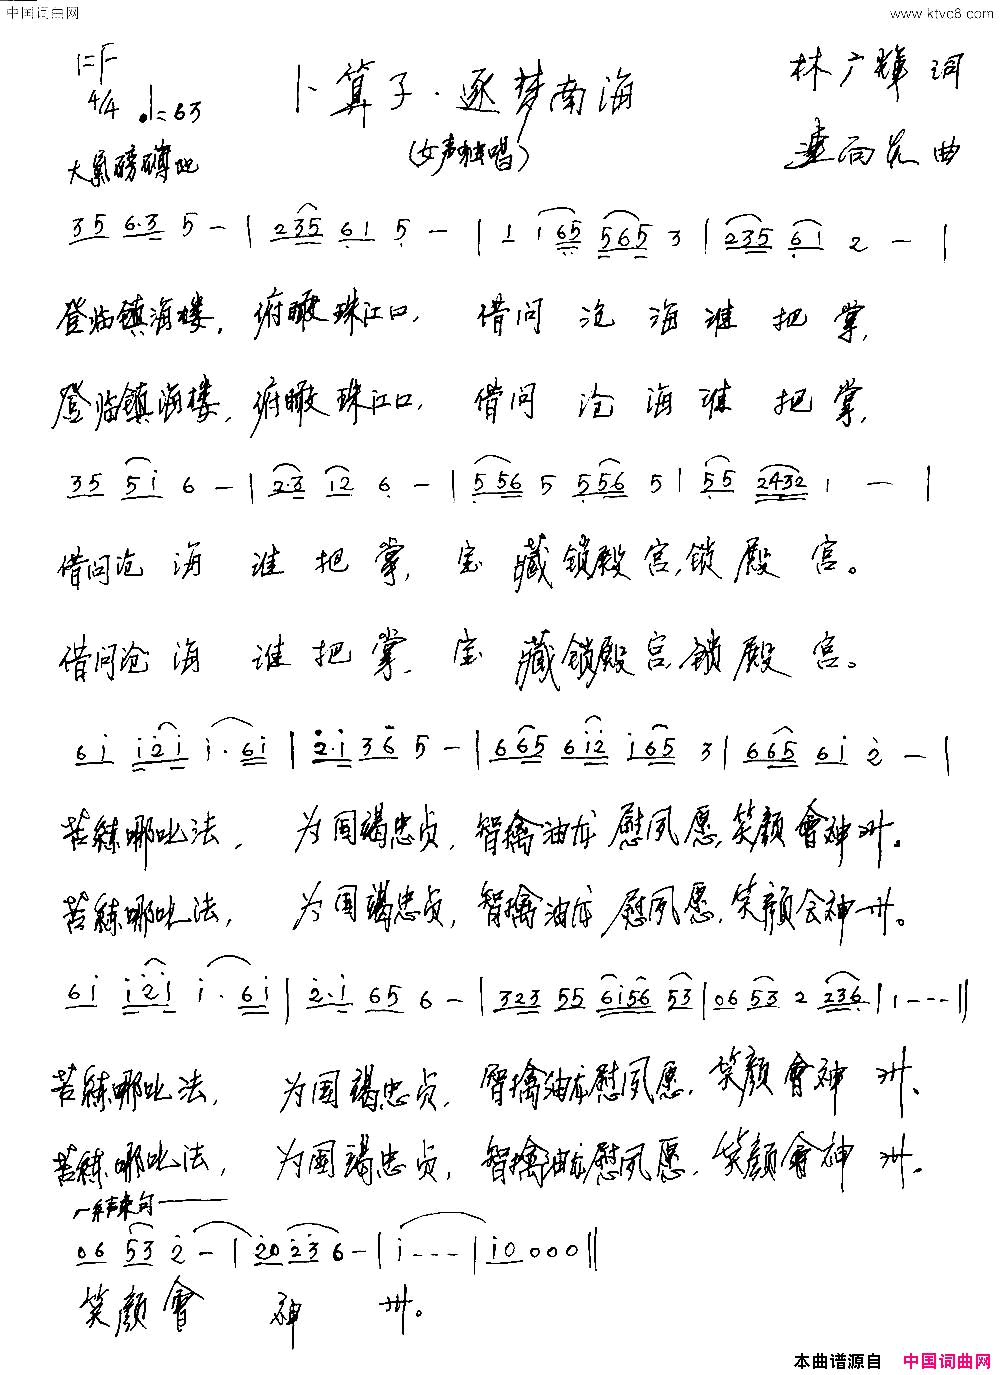 中国词曲网 www.ktvc8.com
1=F
4/4 ♩=63
卜算子·逐梦南海
林广辉 词
(女声独唱)
曲
大气磅礴地
35 6·3 5 - | 235 61 5 - | 1 165 565 3 | 235 61 2 - |
登临镇海楼，俯瞰珠江口，借问沧海谁把掌，
登临镇海楼，俯瞰珠江口，借问沧海谁把掌，
35 51 6 - | 23 12 6 - | 556 5 556 5 | 55 2432 1 - |
借问沧海谁把掌，宝藏锁殿宫，锁殿宫。
借问沧海谁把掌，宝藏锁殿宫，锁殿宫。
61 121 1·61 | 2·1 36 5 - | 665 612 165 3 | 665 61 2 - |
苦練哪吒法，为国竭忠贞，智擒油龙慰夙愿，笑颜會神州。
苦練哪吒法，为国竭忠贞，智擒油龙慰夙愿，笑颜会神州。
61 121 1·61 | 2·1 65 6 - | 323 55 6156 53 | 06 53 2 236 | 1 - - - ||
苦練哪吒法，为国竭忠贞，智擒油龙慰夙愿，笑颜會神州。
苦練哪吒法，为国竭忠贞，智擒油龙慰夙愿，笑颜會神州。
结束句
06 53 2 - | 20 23 6 - | 1 - - - | 10 0 0 0 ||
笑颜會神州。
本曲谱源自 中国词曲网